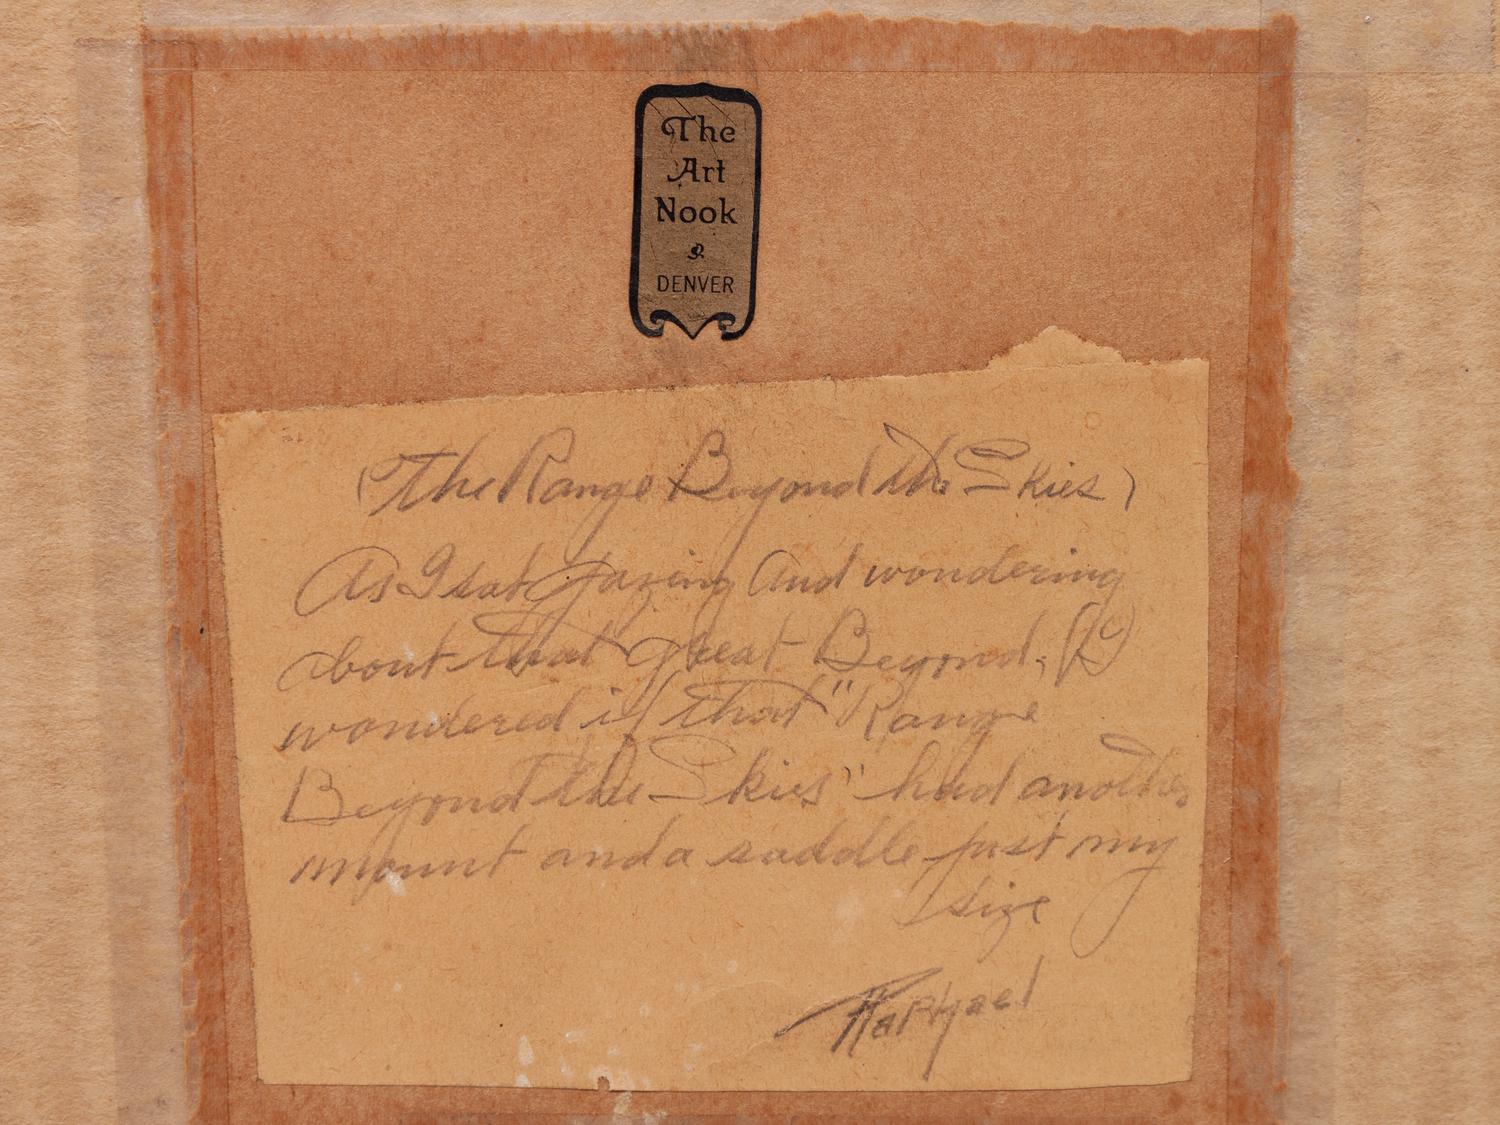 The
Art
Nook
DENVER
(The Range Beyond the Skies)
As I sat gazing and wondering
bout that great Beyond. (I)
wondered if that "Range
Beyond the Skies" had another
mount and a saddle just my
size
Raphael